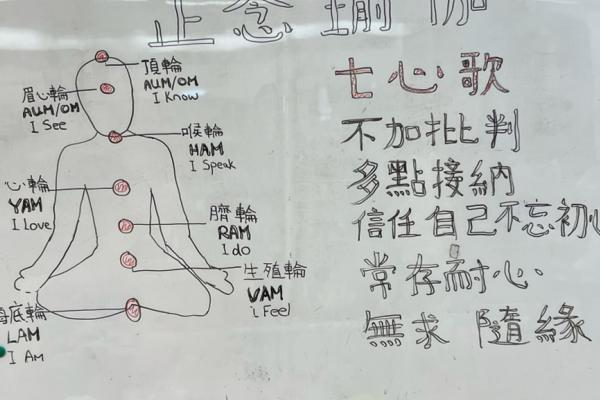 正念瑜伽
頂輪
AUM/OM
I Know
眉心輪
AUM/OM
I See
喉輪
HAM
I Speak
心輪
YAM
I love
臍輪
RAM
I do
生殖輪
VAM
i Feel
海底輪
LAM
I AM
七心歌
不加批判
多點接納
信任自己不忘初心
常存耐心
無求 隨緣